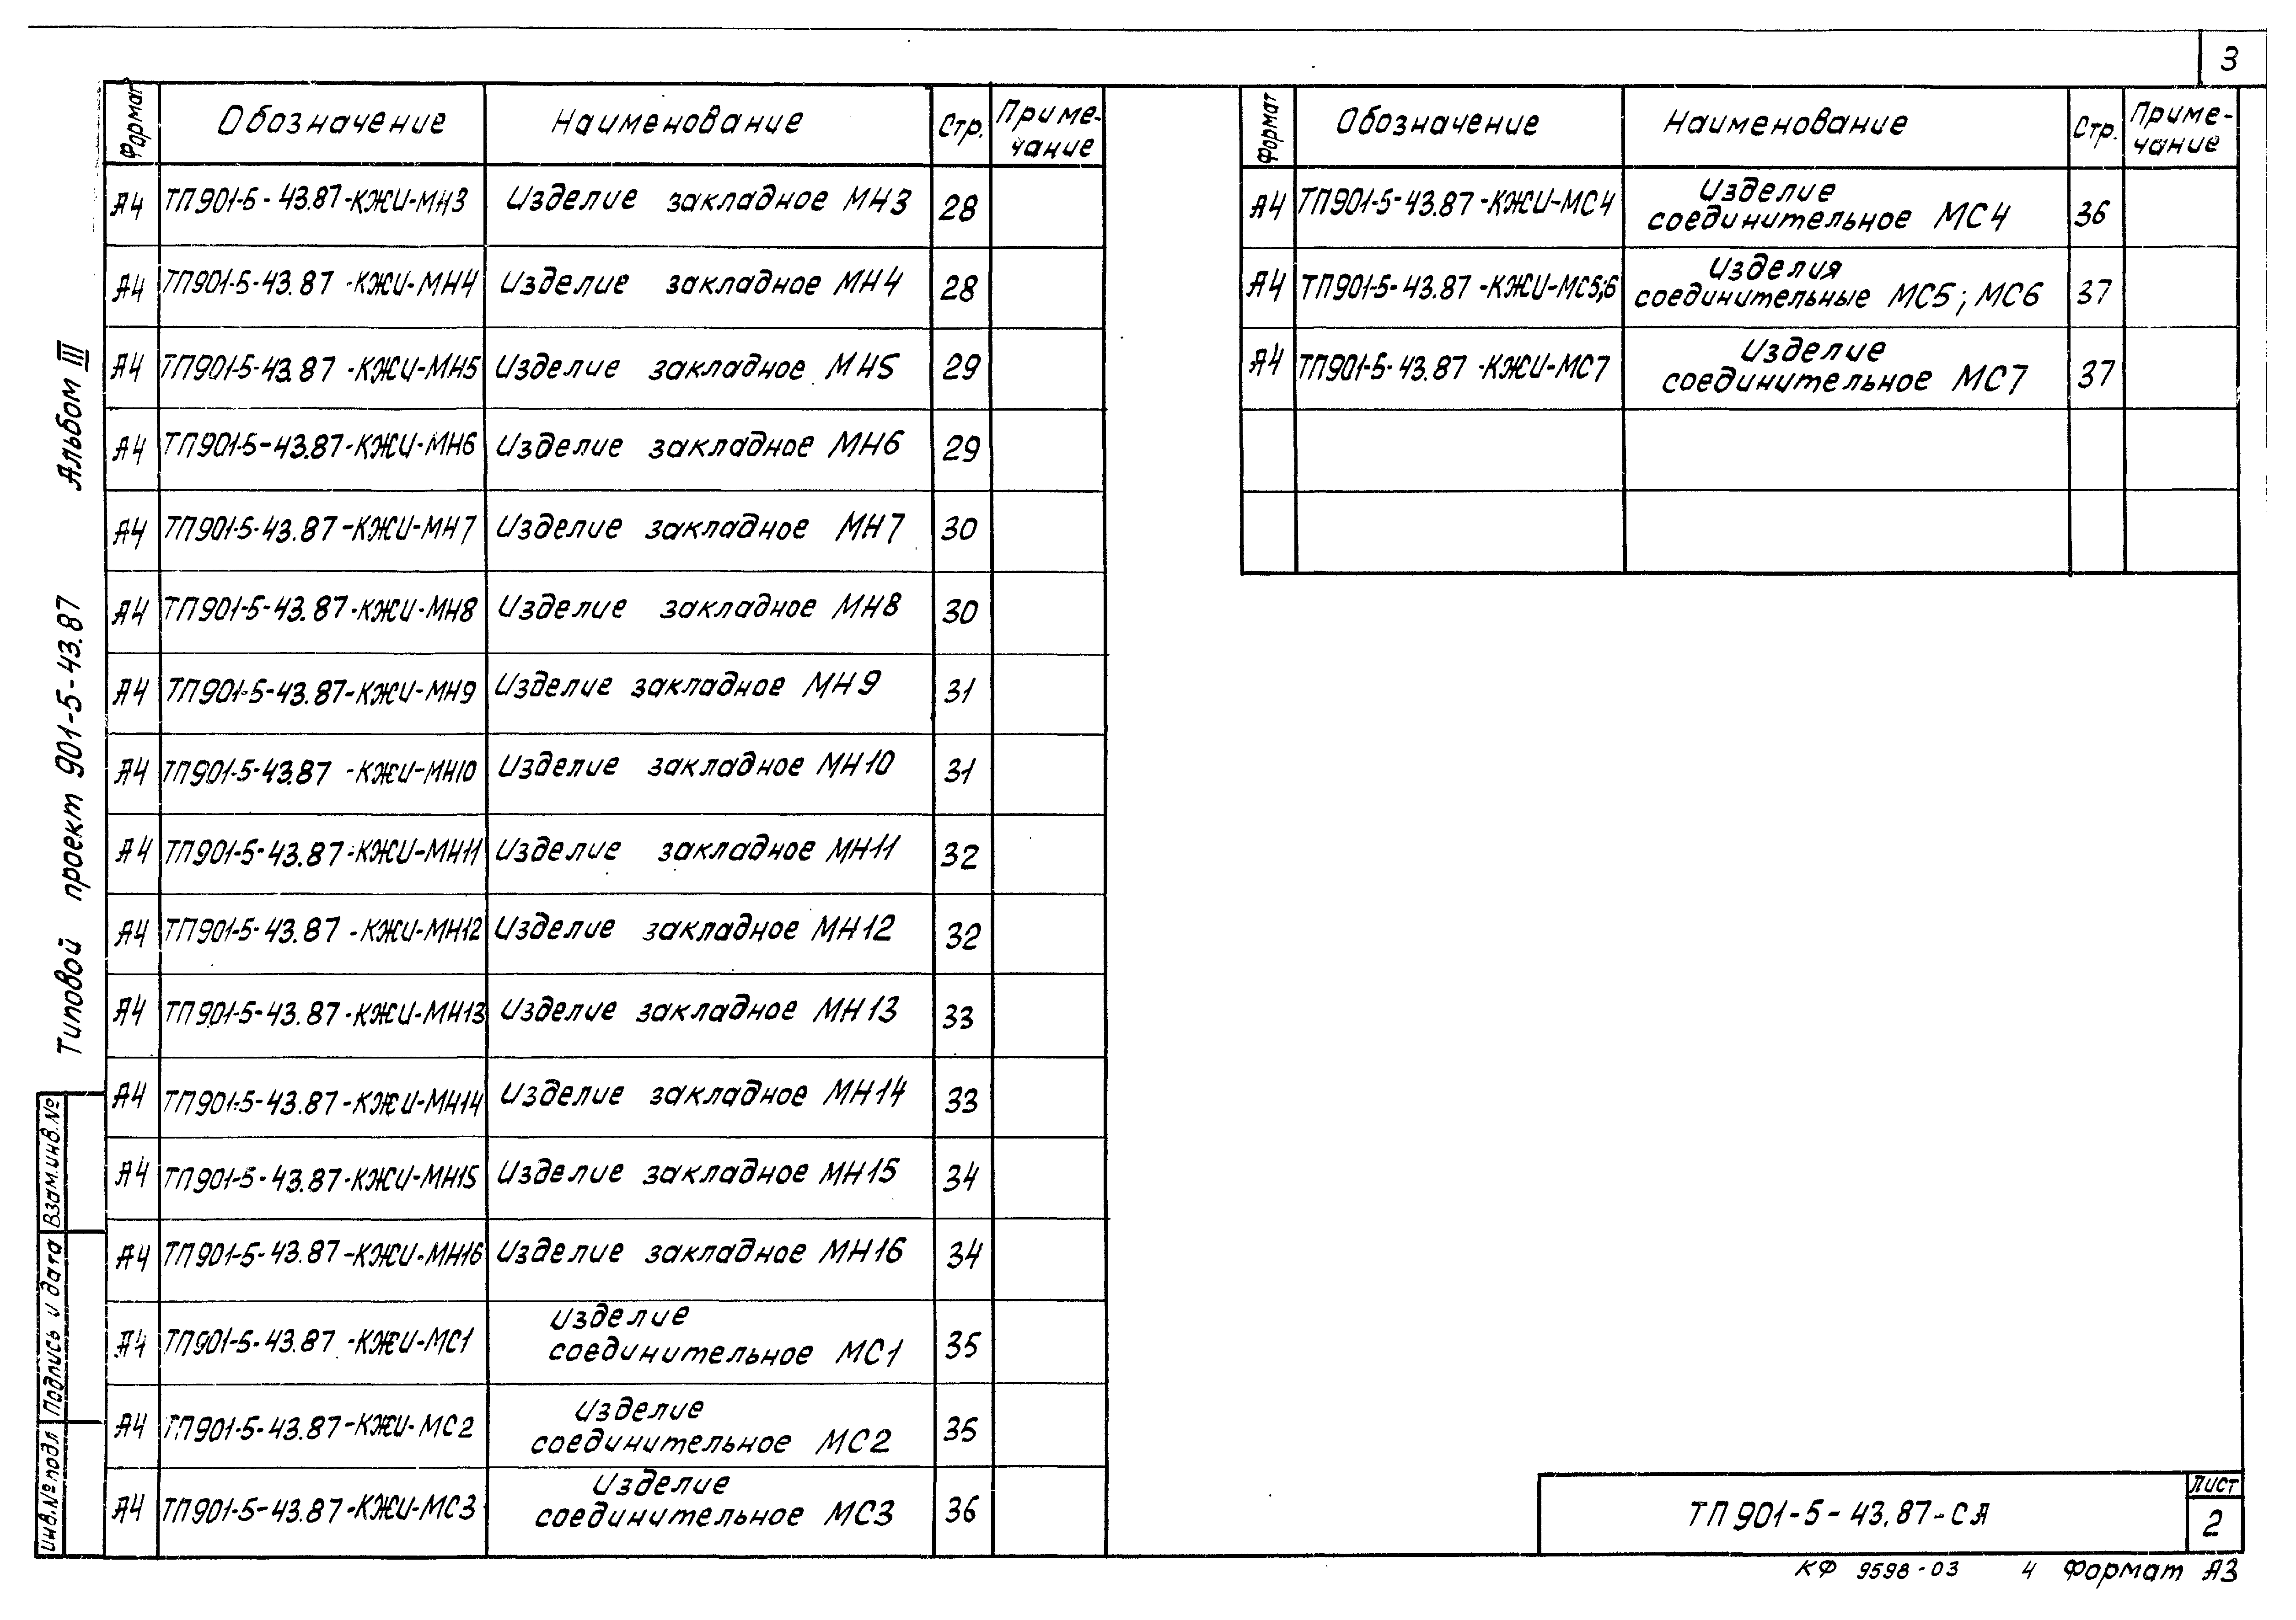 3
Формат Обозначение Наименование Стр. Приме-
чание
А4 ТП901-5-43.87-КЖИ-МН3 Изделие закладное МН3 28
А4 ТП901-5-43.87-КЖИ-МН4 Изделие закладное МН4 28
А4 ТП901-5-43.87-КЖИ-МН5 Изделие закладное МН5 29
А4 ТП901-5-43.87-КЖИ-МН6 Изделие закладное МН6 29
А4 ТП901-5-43.87-КЖИ-МН7 Изделие закладное МН7 30
А4 ТП901-5-43.87-КЖИ-МН8 Изделие закладное МН8 30
А4 ТП901-5-43.87-КЖИ-МН9 Изделие закладное МН9 31
А4 ТП901-5-43.87-КЖИ-МН10 Изделие закладное МН10 31
А4 ТП901-5-43.87-КЖИ-МН11 Изделие закладное МН11 32
А4 ТП901-5-43.87-КЖИ-МН12 Изделие закладное МН12 32
А4 ТП901-5-43.87-КЖИ-МН13 Изделие закладное МН13 33
А4 ТП901-5-43.87-КЖИ-МН14 Изделие закладное МН14 33
А4 ТП901-5-43.87-КЖИ-МН15 Изделие закладное МН15 34
А4 ТП901-5-43.87-КЖИ-МН16 Изделие закладное МН16 34
Изделие
А4 ТП901-5-43.87-КЖИ-МС1 соединительное МС1 35
Изделие
А4 ТП901-5-43.87-КЖИ-МС2 соединительное МС2 35
Изделие
А4 ТП901-5-43.87-КЖИ-МС3 соединительное МС3 36
Формат Обозначение Наименование Стр. Приме-
чание
Изделие
А4 ТП901-5-43.87-КЖИ-МС4 соединительное МС4 36
Изделия
А4 ТП901-5-43.87-КЖИ-МС5;6 соединительные МС5; МС6 37
Изделие
А4 ТП901-5-43.87-КЖИ-МС7 соединительное МС7 37
Типовой проект 901-5-43.87 Альбом III
Инв.№подл Подпись и дата Взам.инв.№
ТП901-5-43.87-СА
Лист
2
КФ 9598-03 4 Формат А3